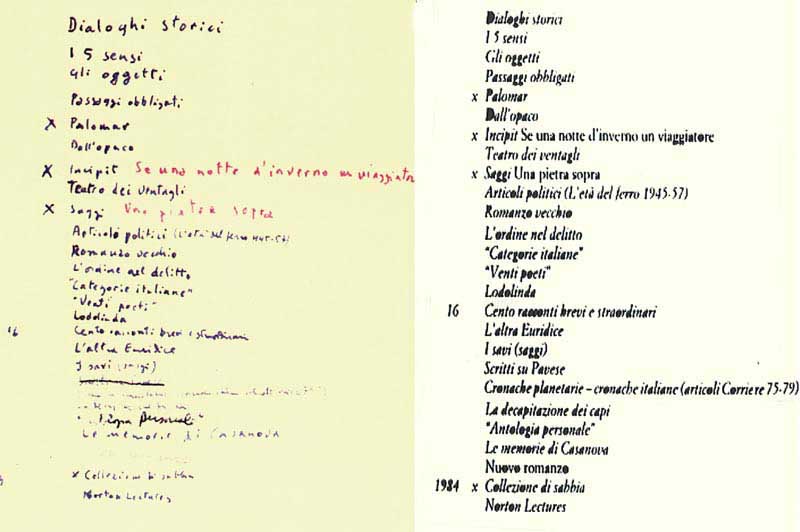 Dialoghi storici
I 5 sensi
Gli oggetti
Passaggi obbligati
x Palomar
Dall'opaco
x Incipit Se una notte d'inverno un viaggiatore
Teatro dei ventagli
x Saggi Una pietra sopra
Articoli politici (L'età del ferro 1945-57)
Romanzo vecchio
L'ordine nel delitto
"Categorie italiane"
"Venti poeti"
Lodolinda
16 Cento racconti brevi e straordinari
L'altra Euridice
I savi (saggi)
Personali"
Le memorie di Casanova
x Collezione di sabbia
Norton Lectures
Dialoghi storici
I 5 sensi
Gli oggetti
Passaggi obbligati
x Palomar
Dall'opaco
x Incipit Se una notte d'inverno un viaggiatore
Teatro dei ventagli
x Saggi Una pietra sopra
Articoli politici (L'età del ferro 1945-57)
Romanzo vecchio
L'ordine nel delitto
"Categorie italiane"
"Venti poeti"
Lodolinda
16 Cento racconti brevi e straordinari
L'altra Euridice
I savi (saggi)
Scritti su Pavese
Cronache planetarie – cronache italiane (articoli Corriere 75-79)
La decapitazione dei capi
"Antologia personale"
Le memorie di Casanova
Nuovo romanzo
1984 x Collezione di sabbia
Norton Lectures